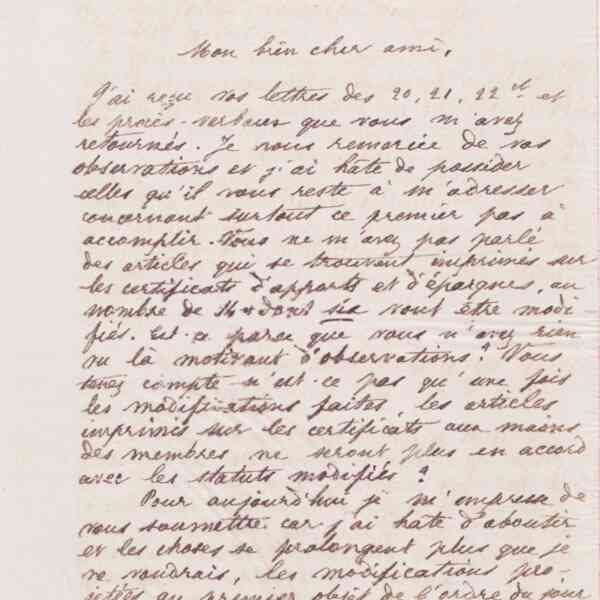 Mon bien cher ami,
J'ai reçu vos lettres des 20, 21, 22 ct et
les procès-verbaux que vous m'avez
retournés. Je vous remercie de vos
observations et j'ai hate de posséder
celles qu'il vous reste à m'adresser
concernant surtout ce premier pas à
accomplir. Vous ne m'avez pas parlé
des articles qui se trouvent imprimés sur
les certificats d'apports et d'épargnes, au
nombre de 14 dont six vont être modi
fiés. Est-ce parce que vous n'avez rien
vu là motivant d'observations? Vous
tenez compte n'est-ce pas qu'une fois
les modifications faites, les articles
imprimés sur les certificats aux mains
des membres ne seront plus en accord
avec les statuts modifiés?
Pour aujourd'hui je m'empresse de
vous soumettre car j'ai hate d'aboutir
et les choses se prolongent plus que je
ne voudrais, les modifications pro-
jetées au premier objet de l'ordre du jour